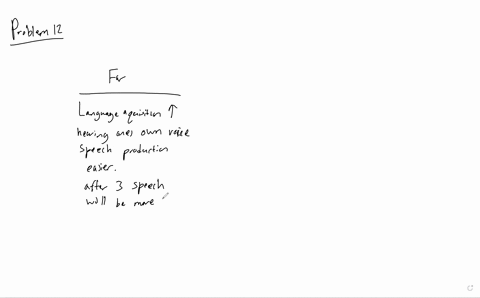 Problem 12
For
Language aquisition ↑
hearing ones own voice
Speech production
easier.
after 3 speech
will be more